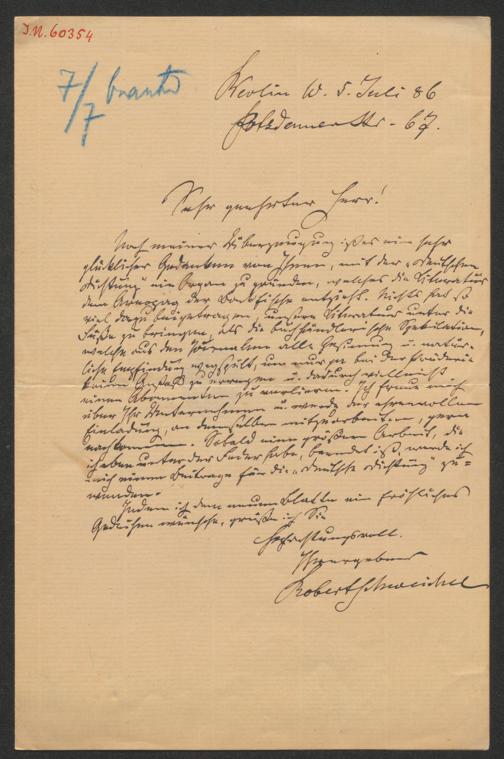 J.N. 60354
7/7 beantw
Berlin W. 5. Juli 86
Potsdamerstr. 67.
Sehr geehrter Herr!
Nach meiner Überzeugung ist es ein sehr
glücklicher Gedanke von Ihnen, mit der „Deutschen
Dichtung" ein Organ zu gründen, welches die Literatur
dem der Backfische entzieht. Nichts hat so
viel dazu beigetragen, unsere Literatur unter die
Füße zu bringen, als die buchhändlerische Spekulation,
welche aus den Journalen alle Gesinnung u. natür-
liche Empfindung, um nur ja bei der Prüderie
keinen Anstoß zu erregen u. dadurch vielleicht
einen Abonnenten zu verlieren. Ich freue mich
über Ihr Unternehmen u. werde der ehrenvollen
Einladung, an demselben mitzuarbeiten, gern
nachkommen. Sobald eine größere Arbeit, die
ich eben unter der Feder habe, beendet ist, werde ich
mich einem Beitrage für die „Deutsche Dichtung" zu-
wenden.
Indem ich dem neuen Blatte ein fröhliches
Gedeihen wünsche, grüße ich Sie
hochachtungsvoll.
Ihr ergebener
Robert Schweichel